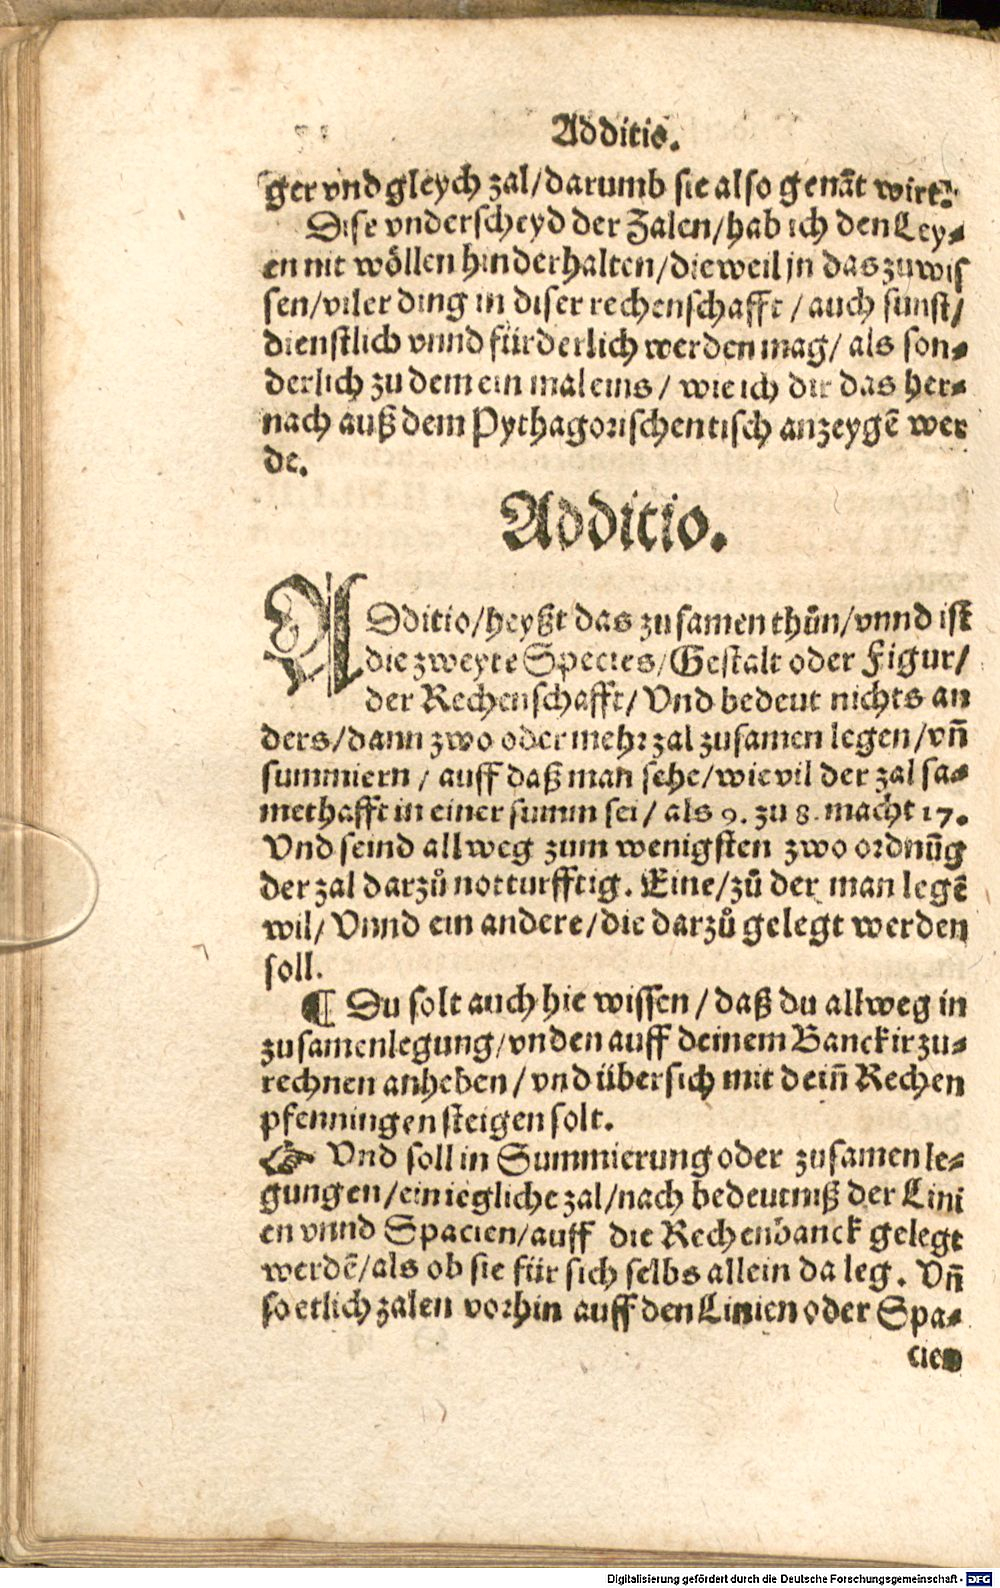 Additio.
ger vnd gleych zal/darumb sie also genāt wirt.
Dise vnderscheyd der Zalen/hab ich den Ley-
en nit wöllen hinderhalten/dieweil jn das zuwis
sen/viler ding in diser rechenschafft/auch sunst/
dienstlich vnnd fürderlich werden mag/als son-
derlich zu dem ein mal eins/wie ich dir das her-
nach auß dem Pythagorischen tisch anzeygē wer
de.
Additio.
ADditio/heyßt das zusamen thůn/vnnd ist
die zweyte Species/Gestalt oder Figur/
der Rechenschafft/Vnd bedeut nichts an
ders/dann zwo oder mehr zal zusamen legen/vñ
summiern/auff daß man sehe/wie vil der zal sa-
methafft in einer summ sei/als 9. zu 8. macht 17.
Vnd seind allweg zum wenigsten zwo ordnūg
der zal darzů notturfftig. Eine/zů der man legē
wil/Vnnd ein andere/die darzů gelegt werden
soll.
¶ Du solt auch hie wissen/daß du allweg in
zusamenlegung/vnden auff deinem Banckir zu-
rechnen anheben/vnd übersich mit deiñ Rechen
pfenningen steigen solt.
☞ Vnd soll in Summierung oder zusamen le-
gungen/ein iegliche zal/nach bedeutniß der Lini
en vnnd Spacien/auff die Rechenbanck gelegt
werdē/als ob sie für sich selbs allein da leg. Vñ
so etlich zalen vorhin auff den Linien oder Spa-
cien
Digitalisierung gefördert durch die Deutsche Forschungsgemeinschaft - DFG